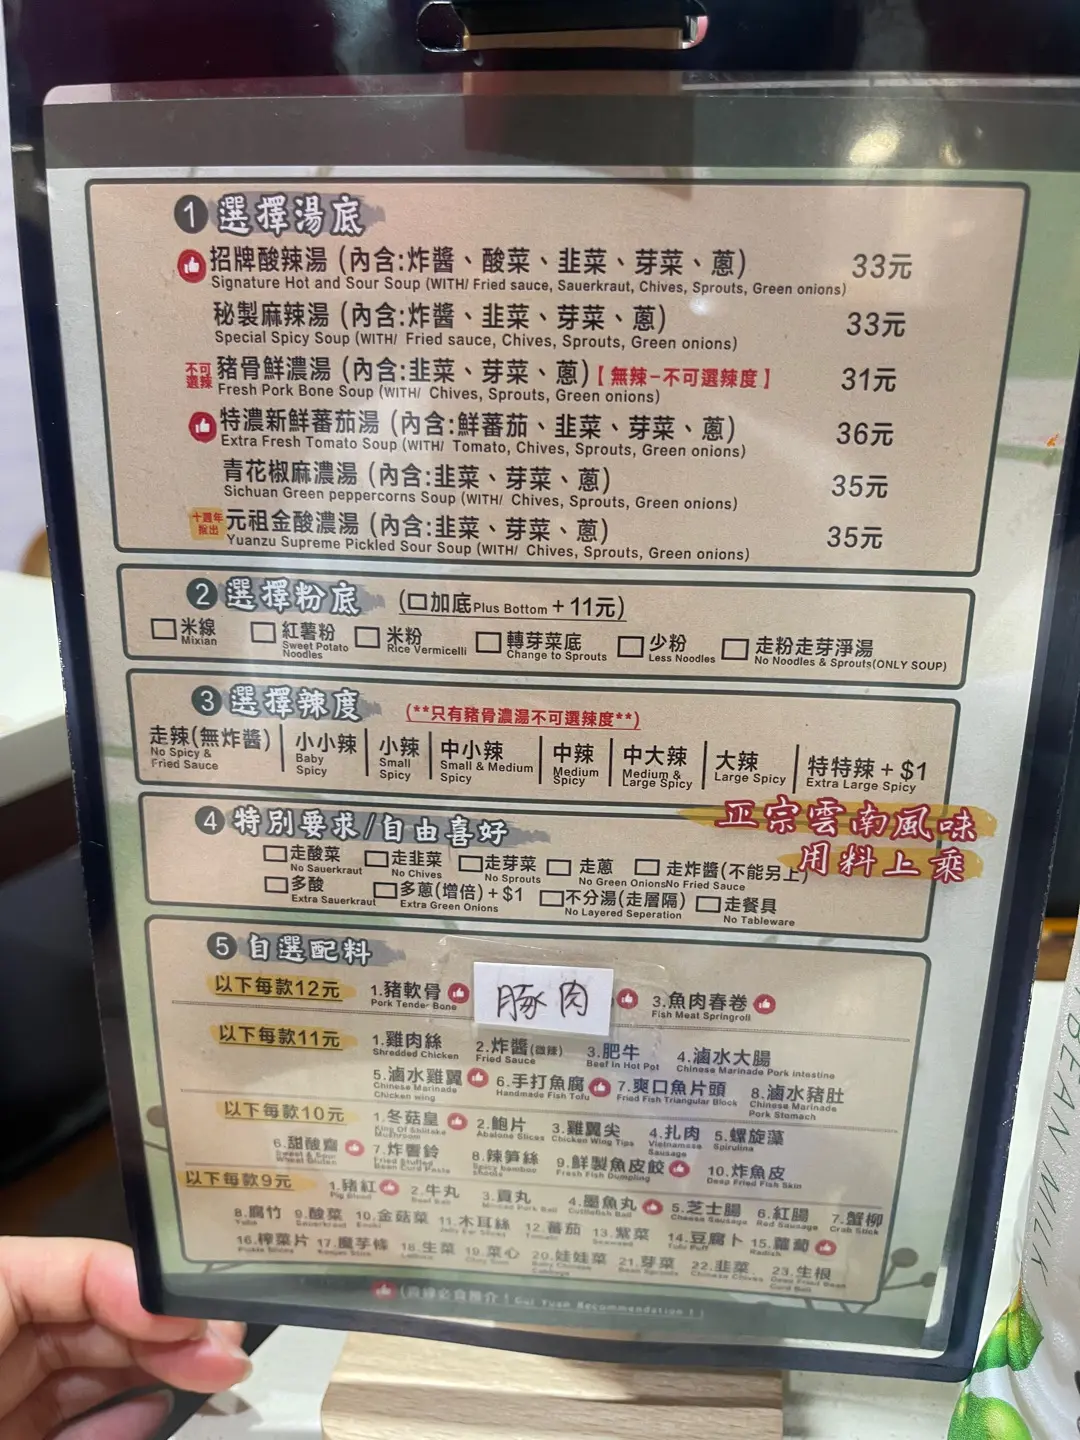 1 選擇湯底
招牌酸辣湯 (內含:炸醬、酸菜、韭菜、芽菜、蔥) 33元
Signature Hot and Sour Soup (WITH/ Fried sauce, Sauerkraut, Chives, Sprouts, Green onions)
秘製麻辣湯 (內含:炸醬、韭菜、芽菜、蔥) 33元
Special Spicy Soup (WITH/ Fried sauce, Chives, Sprouts, Green onions)
不可選辣 豬骨鮮濃湯 (內含:韭菜、芽菜、蔥)【無辣-不可選辣度】 31元
Fresh Pork Bone Soup (WITH/ Chives, Sprouts, Green onions)
特濃新鮮蕃茄湯 (內含:鮮蕃茄、韭菜、芽菜、蔥) 36元
Extra Fresh Tomato Soup (WITH/ Tomato, Chives, Sprouts, Green onions)
青花椒麻濃湯 (內含:韭菜、芽菜、蔥) 35元
Sichuan Green peppercorns Soup (WITH/ Chives, Sprouts, Green onions)
十週年推出 元祖金酸濃湯 (內含:韭菜、芽菜、蔥) 35元
Yuanzu Supreme Pickled Sour Soup (WITH/ Chives, Sprouts, Green onions)
2 選擇粉底 (加底 Plus Bottom + 11元)
米線 紅薯粉 米粉 轉芽菜底 少粉 走粉走芽淨湯
Mixian Sweet Potato Noodles Rice Vermicelli Change to Sprouts Less Noodles No Noodles & Sprouts(ONLY SOUP)
3 選擇辣度 (**只有豬骨濃湯不可選辣度**)
走辣(無炸醬) 小小辣 小辣 中小辣 中辣 中大辣 大辣 特特辣 + $1
No Spicy & Fried Sauce Baby Spicy Small Spicy Small & Medium Spicy Medium Spicy Medium & Large Spicy Large Spicy Extra Large Spicy
正宗雲南風味
用料上乘
4 特別要求/自由喜好
走酸菜 走韭菜 走芽菜 走蔥 走炸醬(不能另上)
No Sauerkraut No Chives No Sprouts No Green Onions No Fried Sauce
多酸 多蔥(增倍) + $1 不分湯(走層隔) 走餐具
Extra Sauerkraut Extra Green Onions No Layered Seperation No Tableware
5 自選配料
以下每款12元 1.豬軟骨 豚肉 3.魚肉春卷
Pork Tender Bone Fish Meat Springroll
以下每款11元 1.雞肉絲 2.炸醬(微辣) 3.肥牛 4.滷水大腸
Shredded Chicken Fried Sauce Beef in Hot Pot Chinese Marinade Pork Intestine
5.滷水雞翼 6.手打魚腐 7.爽口魚片頭 8.滷水豬肚
Chinese Marinade Chicken wing Handmade Fish Tofu Fried Fish Triangular Block Chinese Marinade Pork Stomach
以下每款10元 1.冬菇皇 2.鮑片 3.雞翼尖 4.扎肉 5.螺旋藻
King Of Shiitake Mushroom Abalone Slices Chicken Wing Tips Vietnamese Sausage Spirulina
6.甜酸齋 7.炸響鈴 8.辣筍絲 9.鮮製魚皮餃 10.炸魚皮
Sweet & Sour Wheat Gluten Fried Stuffed Bean Curd Paste Spicy bamboo shoots Fresh Fish Dumpling Deep Fried Fish Skin
以下每款9元 1.豬紅 2.牛丸 3.貢丸 4.墨魚丸 5.芝士腸 6.紅腸 7.蟹柳
Pig Blood Beef Ball Minced Pork Ball Cuttlefish Ball Cheese Sausage Red Sausage Crab Stick
8.腐竹 9.酸菜 10.金菇菜 11.木耳絲 12.蕃茄 13.紫菜 14.豆腐卜 15.蘿蔔
Sauerkraut Tofu Puff Radish
16.榨菜片 17.魔芋條 18.生菜 19.菜心 20.娃娃菜 21.芽菜 22.韭菜 23.生根
Baby Chinese Cabbage Bean Sprouts Chinese Chives
Recommendation !
BEAN MILK